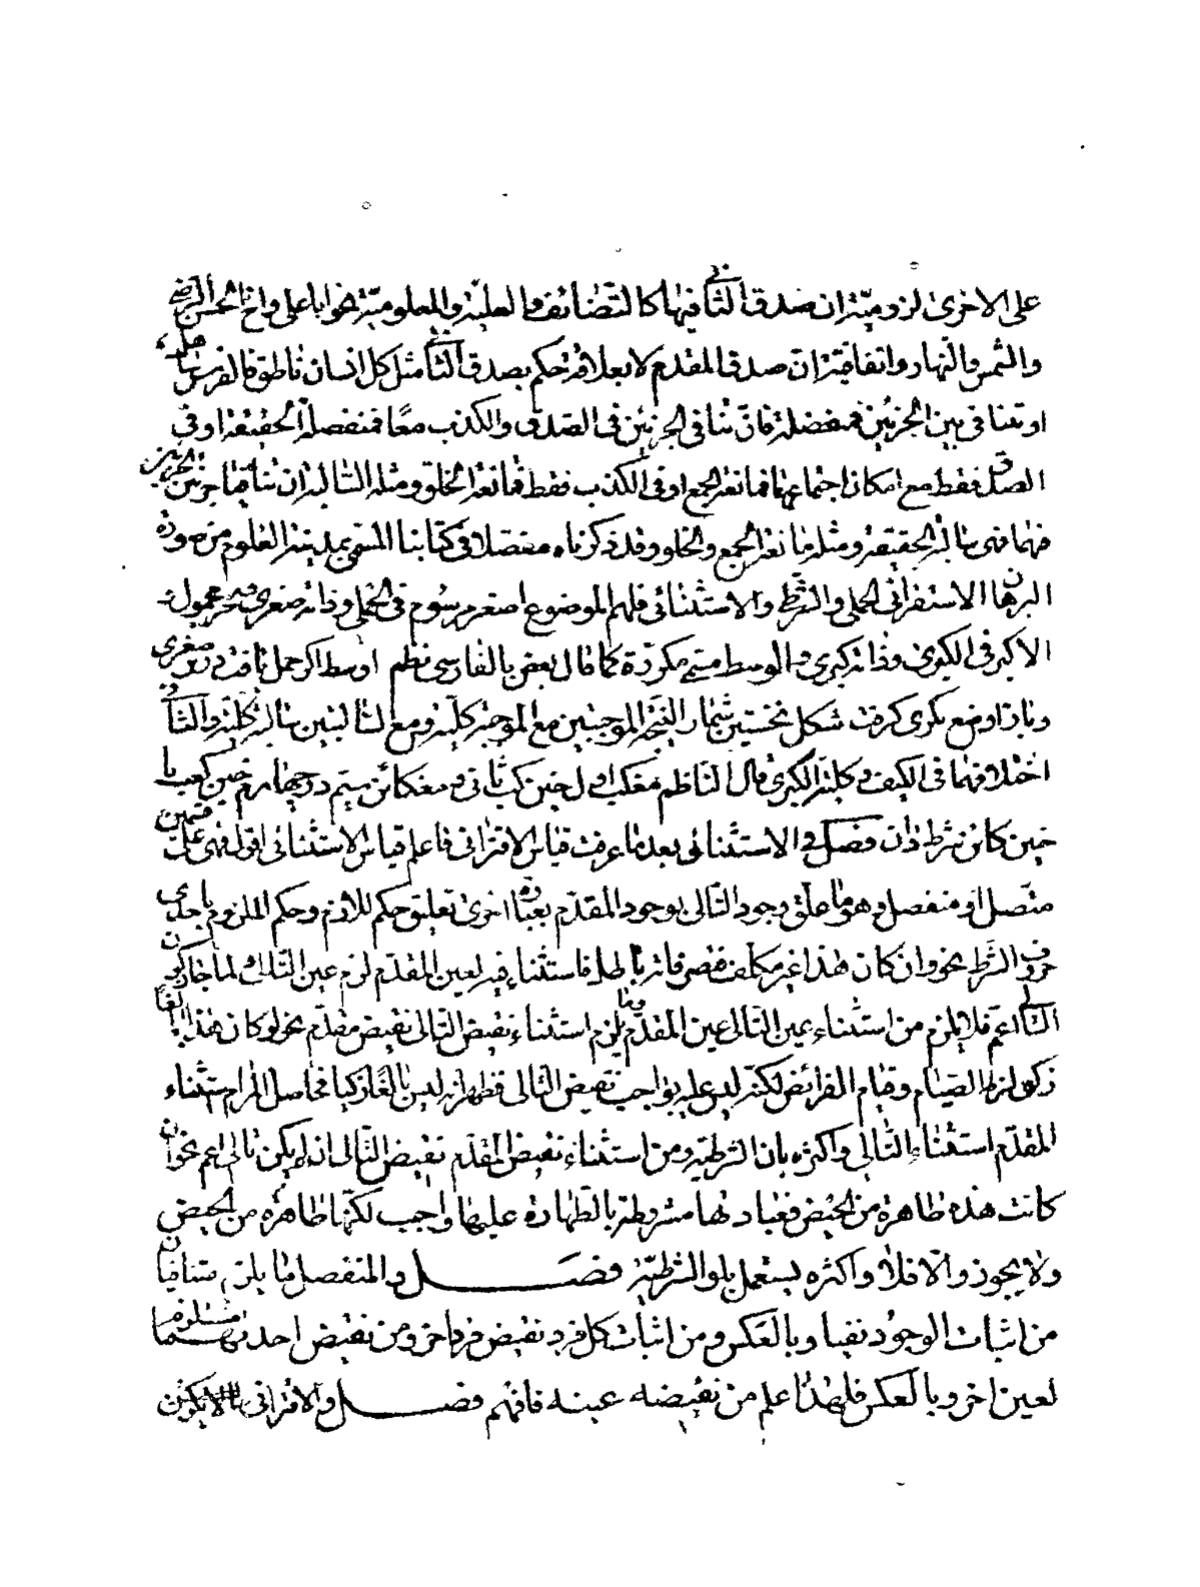 على الاخرى لزومية ان صدق الثاني فيها كالتضائف والعلية والمعلومية نحو ابا علي واخ الحسن الرضي
والشمس والنهار واتفاقية ان صدق المقدم لا بعلاقة حكم بصدق الثاني مثل كل انسان ناطق فالفرس صاهل
او تنافي بين الجزئين فمنفصلة فان تنافي الجزئين في الصدق والكذب معا فمنفصلة الحقيقة او في
الصدق فقط مع امكان اجتماعهما فمانعة الجمع او في الكذب فقط فمانعة الخلو ومثله السالبة ان تنافيا جزئين
فهي سالبة الحقيقة ومثله مانعة الجمع والخلو وقد ذكرناه مفصلا في كتابنا المسمى بمدينة العلوم من صورة
البرهان الاستقرائي الحملي والشرطي والاستثنائي فلهم الموضوع اصغر مرسوم في الحملي وذاته صغرى ومحموله
الاكبر في الكبرى وذاته كبرى والوسط مسمى مكررة كما قال بعض بالفارسي نظم اوسط اكر حمل يافت در صغرى
وباز اوضع بكبرى كرفت شكل نخستين شمار النتيجة الموجبتين مع الموجبة كلية ومع السالبتين سالبة كلية والثاني
اختلافهما في الكيف وكلية الكبرى قال الناظم مغكب اول خين كب ثاني ومغكاين سيم در چهارم خين كغب يا
خين كاين شرط دان فصل والاستثنائي بعد ما عرفت قياس الاقتراني فاعلم قياس الاستثنائي اقول فهي على قسمين
متصل او منفصل وهو ما علق وجود التالي بوجود المقدم بعبارة اخرى تعليق حكم للازم وحكم الملزوم باحدى
حروف الشرط نحو ان كان هذا غير مكلف فتصرفاته باطل فاستثناء فيه لعين المقدم لزم عين التالي لما جاز كون
التالي اعم فلا يلزم من استثناء عين التالي عين المقدم وما يلزم استثناء نقيض التالي نقيض مقدم نحو لو كان هذا بالغا
زكيا لزم الصيام وقيام الفرائض لكنه ليس عليه بواجب نقيض التالي فظهر انه ليس بالغا زكيا فحاصل المرام استثناء
المقدم استثناء التالي واكثره بان الشرطية ومن استثناء نقيض المقدم نقيض التالي ان لم يكن تالي اعم نحو ان
كانت هذه طاهرة من الحيض فعبادتها مشروطة بالطهارة عليها واجب لكنها طاهرة من الحيض
ولا يجوز والا فلا واكثره يستعمل بلو الشرطية فصل والمنفصل ما يلزم متنافيان
من اثبات الوجود نفيا وبالعكس ومن اثبات كل فرد نقيض فرد اخر ومن نقيض احدهما مستلزم
لعين اخر وبالعكس فلهذا علم من نقيضه عينه فافهم فصل والاقتراني لا يكون